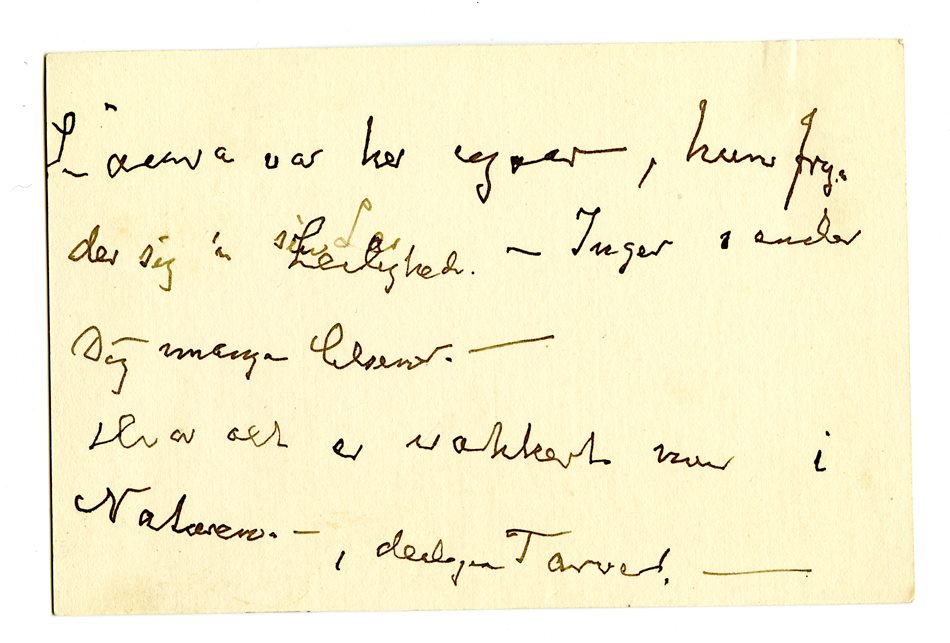 var her igaar, hun fry-
der sig i sin Leilighed. — Inger sender
Dig mange Hilsener. —
Hvor alt er vakkert nu i
Naturen. —, deilige Farver. —